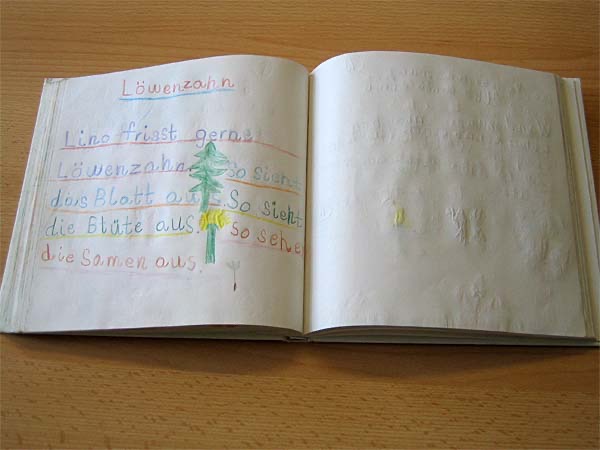 Löwenzahn
Lino frisst gerne
Löwenzahn. So sieht
das Blatt aus. So sieht
die Blüte aus. So sehen
die Samen aus.